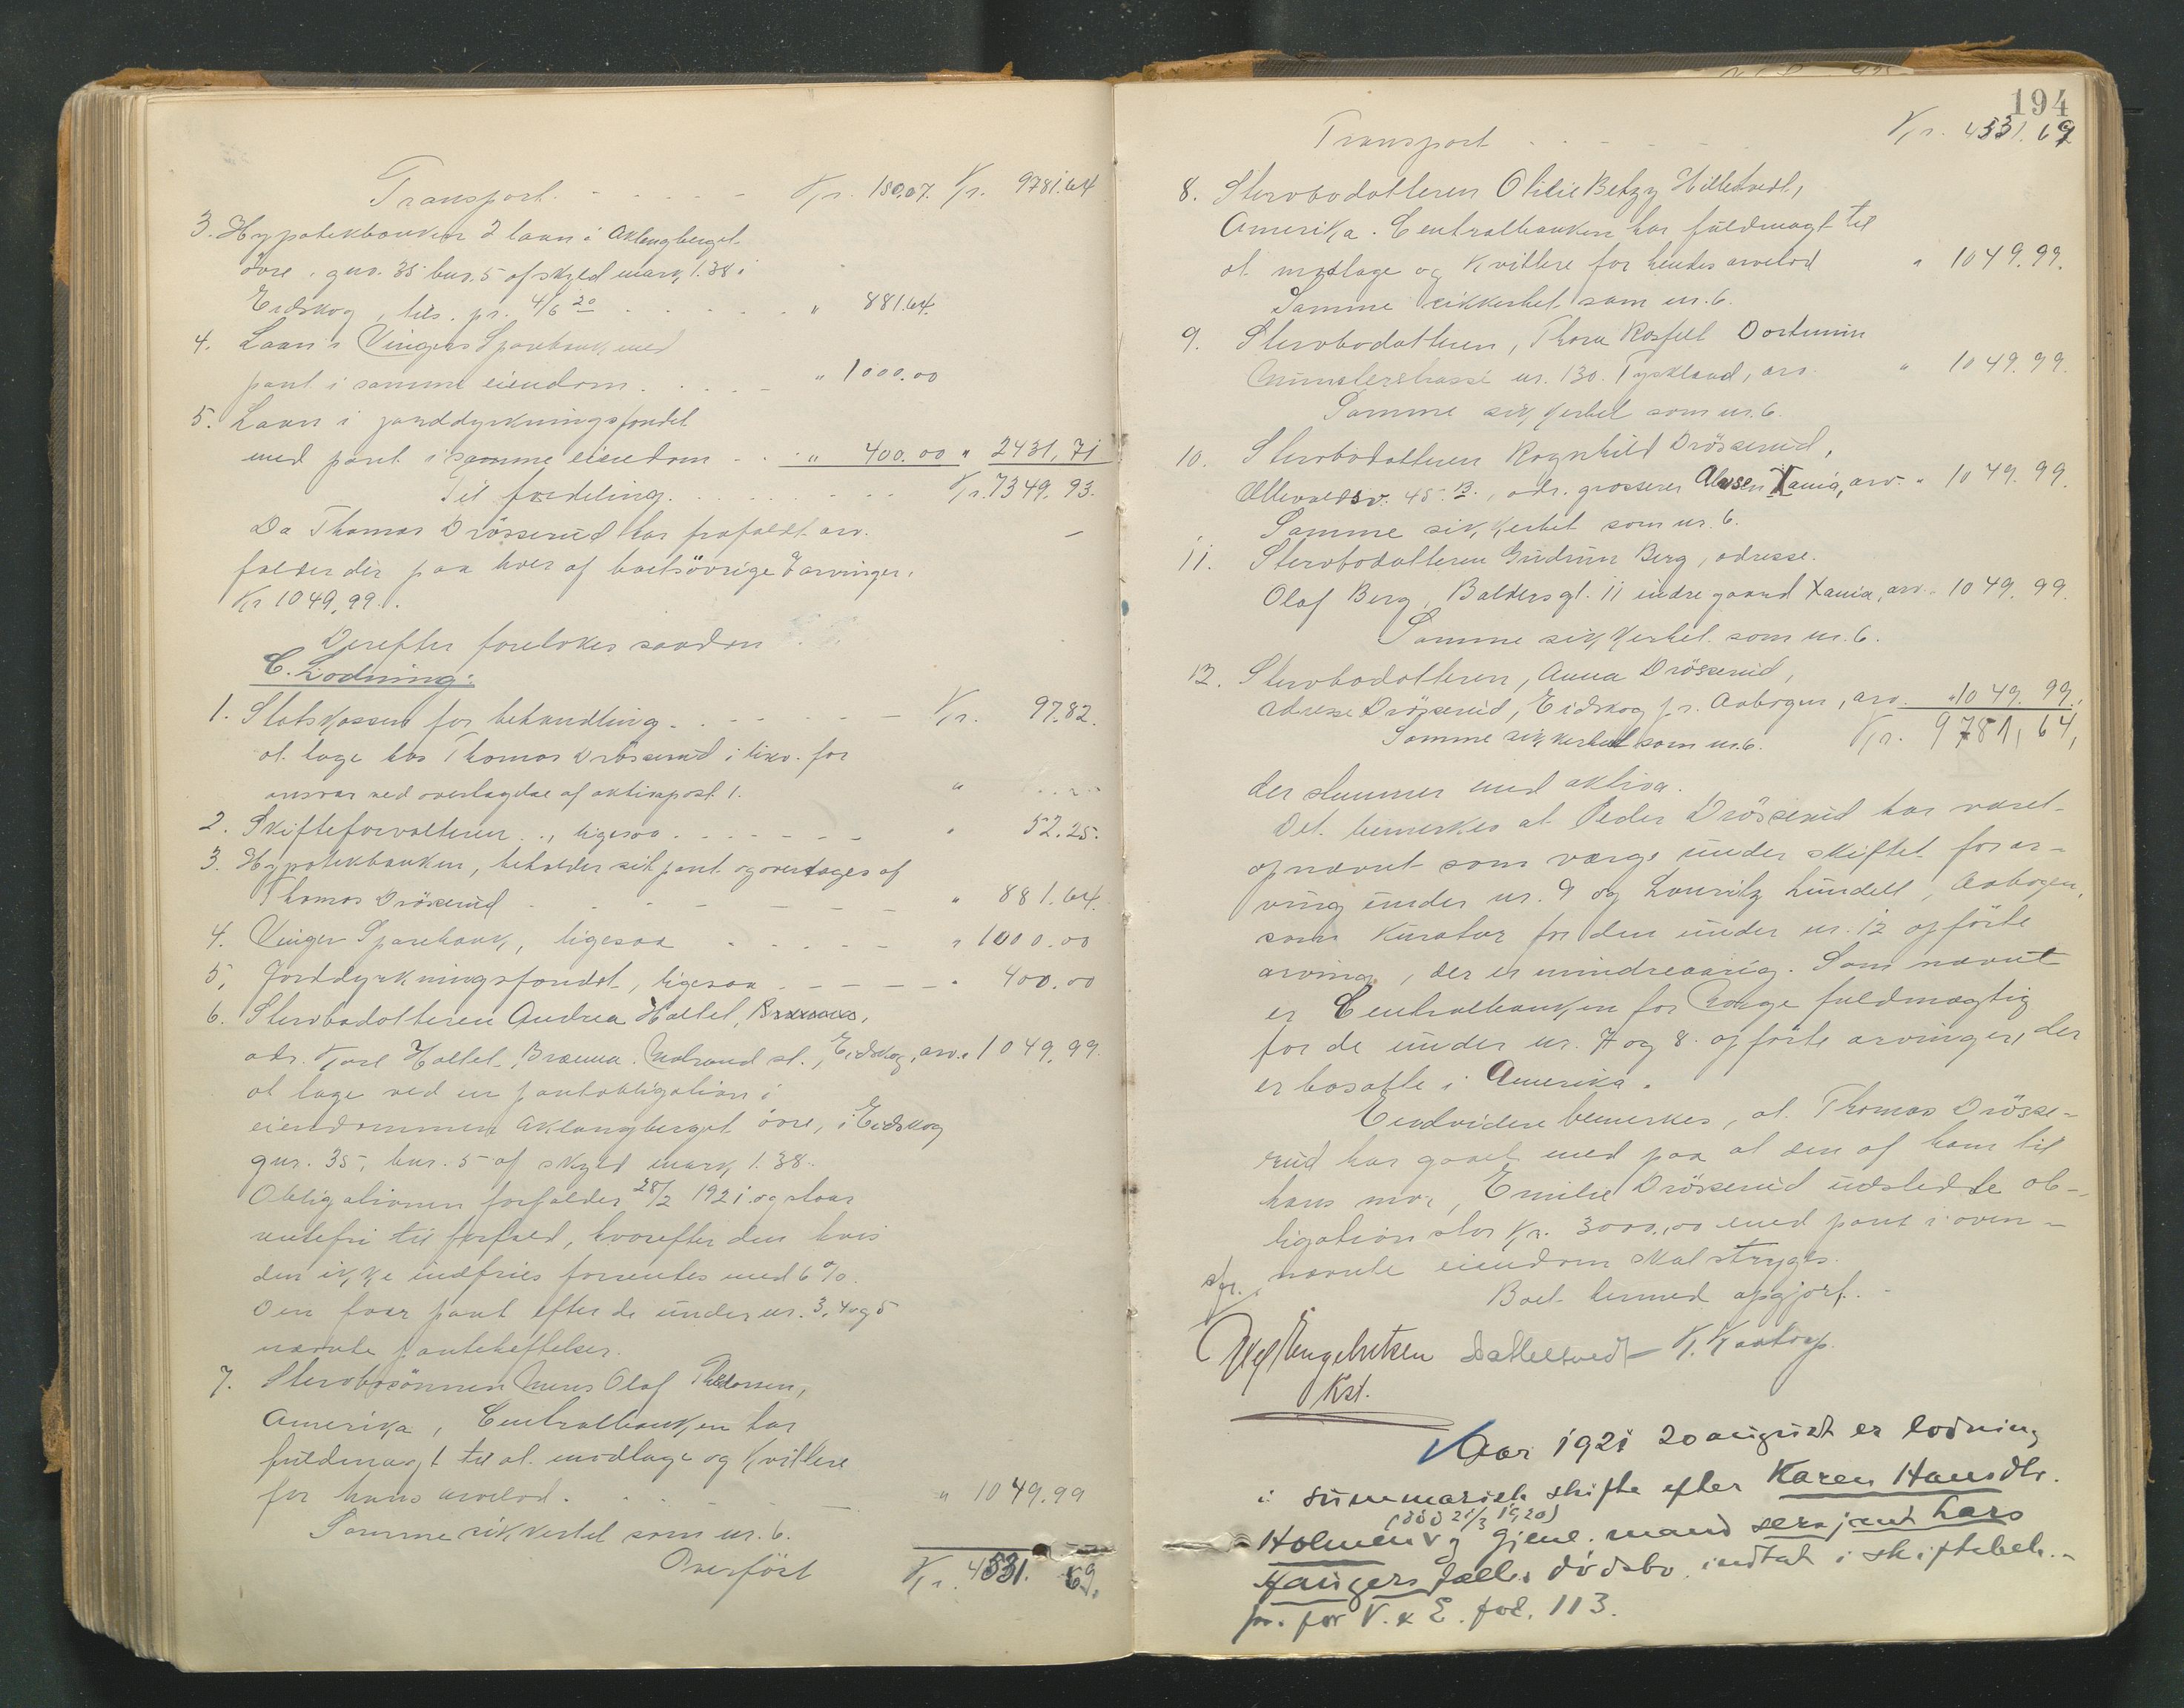 Transport. - - - - - Kr. 150.07. Kr. 9781.64
3. Hypotekbanken 2 laan i Aklangberget
övre, gnr. 35 bnr. 5 af skyld mark 1.38 i
Eidskog, tils. pr. 4/6 20 . . . . . " 881.64.
4. Laan i Vingers Sparebank med
pant i samme eiendom. . . . - " 1000.00
5. Laan i jorddyrkningsfondet
med pant i samme eiendom - . . " 400.00 " 2431,71
Til fordeling. . . . . . . . . Kr. 7349.93.
Da Thomas Drösserud har frafaldt arv.
falder der paa hver af boets övrige 7 arvinger.
Kr 1049,99.
Derefter foretokes saadan
C. Lodning:
1. Statskassen for behandling. - - - - - - Kr. 97.82.
at tage hos Thomas Drösserud i likv. for
ansvar ved overtagelse af aktivapost 1. "
2. Skifteforvalteren .., ligesaa. - - - - - - " 52.25.
3. Hypotekbanken, beholder sit pant og overtages af
Thomas Drösserud - - - - - - - - " 881.64.
4. Vinger Sparebank, ligesaa - - - - - " 1000.00
5, Jorddyrkningsfondet, ligesaa - - - - - " 400.00
6. Stervbodatteren Andrea Holtet,
adr. Karl Holtet, Brænna. Matrand st., Eidskog, arv. " 1049,99.
at tage ved en pantobligation i
eiendommen Aklangberget övre, i Eidskog
gnr. 35, bnr. 5 af skyld mark 1.38.
Obligationen forfalder 28/2 1921 og staar
rentefri til forfald, hvorefter den hvis
den ikke indfries forrentes med 6%.
Den faar pant efter de under nr. 3, 4 og 5
nævnte pantehæftelser.
7. Stervbosönnen Olaf
Amerika, Centralbanken har
fuldmagt til at modtage og kvittere
for hans arvelod. . . . - . - . " 1049.99
Samme sikkerhet som nr. 6.
Overfört Kr. 4531. 69.
194
Transport - - - - - Kr. 4531.69
8. Stervbodatteren Otilie Betzy Hilletvedt,
Amerika. Centralbanken har fuldmagt til
at modtage og kvittere for hendes arvelod " 1049.99.
Samme sikkerhet som nr. 6.
9. Stervbodatteren, Thora
Münsterstrasse nr. 130. Tyskland, arv. " 1049.99.
Samme sikkerhet som nr. 6.
10. Stervbodatteren Ragnhild Drösserud,
Ullevoldsv. 45 B., adr. grosserer Xania, arv. " 1049.99.
Samme sikkerhet som nr. 6.
11. Stervbodatteren Gudrun Berg, adresse.
Olaf Berg, Baldersgt. 11 indre gaard Xania, arv. " 1049.99.
Samme sikkerhet som nr. 6.
12. Stervbodatteren, Anna Drösserud,
adresse Drösserud, Eidskog pr. Aabogen, arv. " 1049.99.
Samme sikkerhet som nr. 6. Kr. 9781,64,
der stemmer med aktiva.
Det bemerkes at Peder Drösserud har været
opnævnt som værge under skiftet for ar-
ving under nr. 9 og Lauritz Lundell, Aabogen,
som kurator for den under nr. 12 opförte
arving, der er mindreaarig. Som nævnt
er Centralbanken for Norge fuldmægtig
for de under nr. 7 og 8. opförte arvinger, der
er bosatte i Amerika.
Endvidere bemerkes, at Thomas Drösse-
rud har gaaet med paa at den af ham til
hans mor, Emilie Drösserud udstedte ob-
ligation stor Kr. 3000,00 med pant i oven-
nævnte eiendom skal stryges.
Boet hermed opgjort.
Engebretsen K. Kaatorp.
Kst.
Aar 1921 20 august er lodning
i summarisk skifte efter Karen Hansdtr.
(död 21/3 1920)
Holmen og gjenl. mand sersjant Lars
Haugers fælles dödsbo indtat i skiftebeh.-
pr. for V. & E. fol. 113.